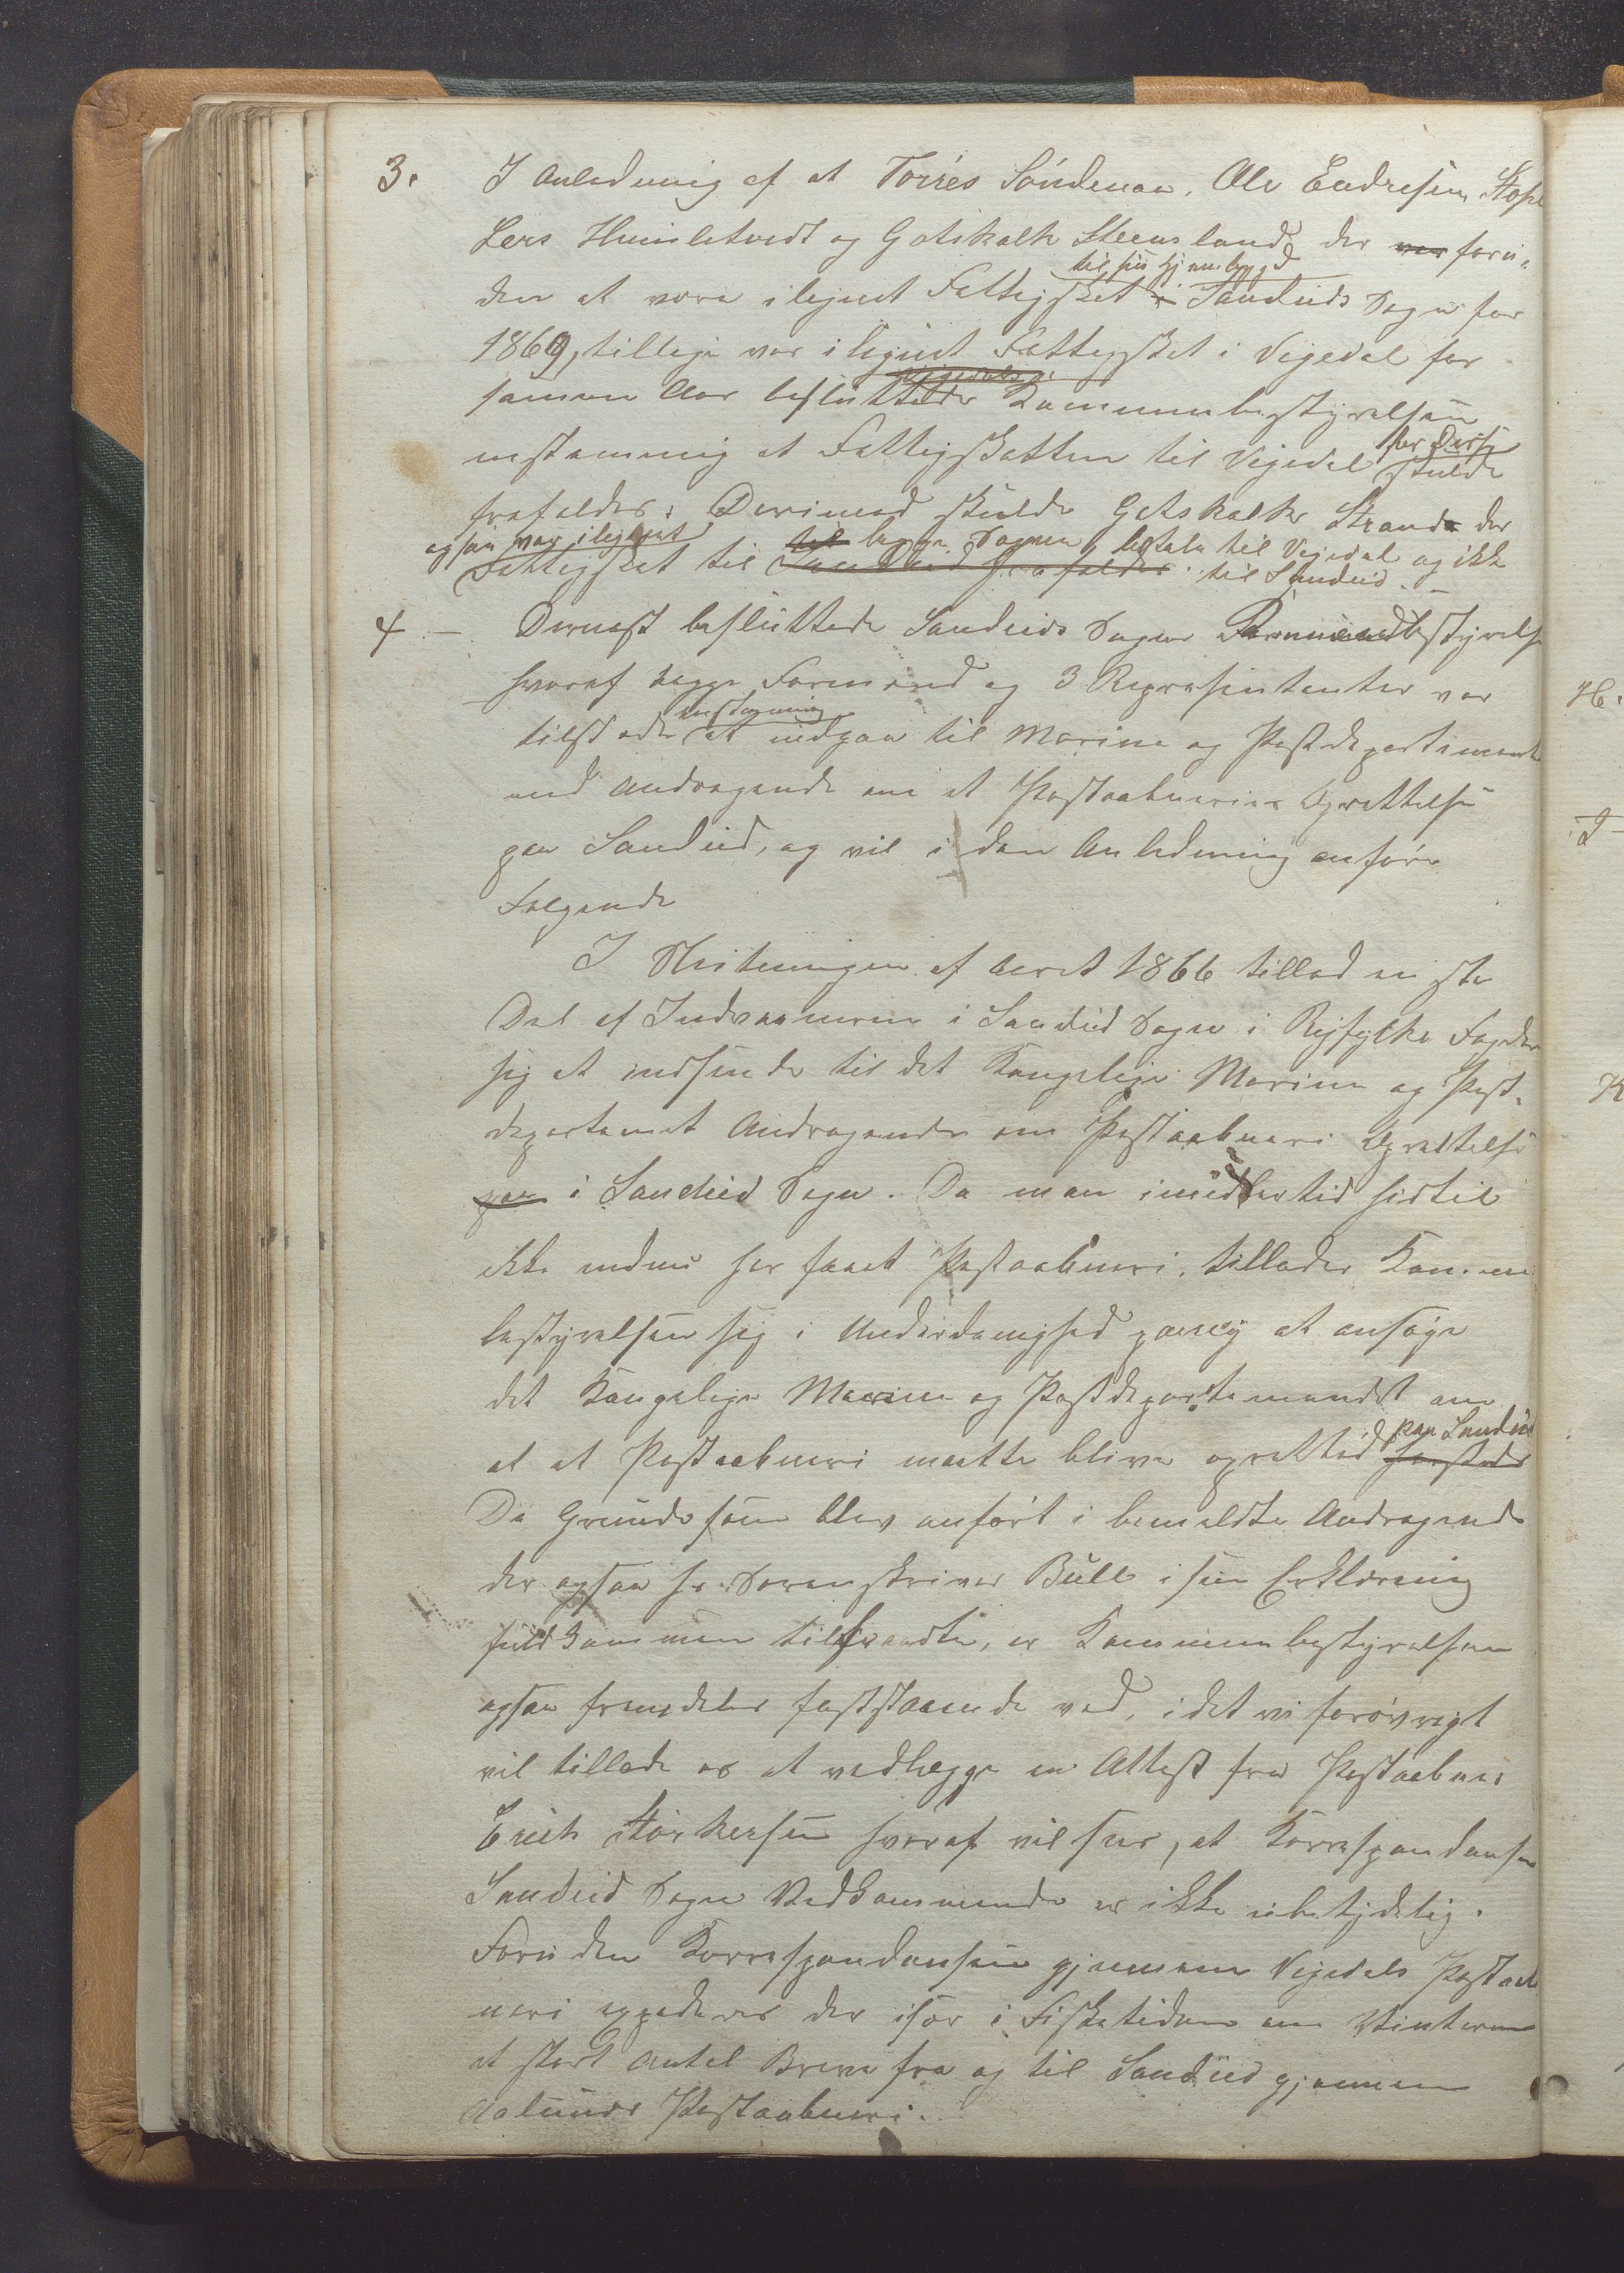 3. I Anledning af at Torres Söndenaa, Ole Endresen Stople
Lars Huuslatvedt og Gotskalk Steensland, der var foru-
til sin Hjembygd
den at være ilignet Fattigskat i Sandeids Sogn for
1869, tillige var ilignet Fattigskat i Vigedal for
Vigedals
samme Aar besluttede Kommunebestyrelsen
for Disse
enstemmig at Fattigskatten til Vigedal skulde
frafaldes. Derimod skulde Gotskalk Strand der
ogsaa var ilignet til begge Sogne, betale til Vigedal og ikke
Fattigskat til Sandeid frafaldes. til Sandeid. –
4 – Dernæst besluttede Sandeids Sogns Kommunebestyrelse
hvoraf begge Formænd og 3 Repræsentanter var
enstemmig
tilstede at indgaa til Marine og Postdepartementet
med Andragende om et Postaabneries Oprettelse
paa Sandeid, og vil i den Anledning anføre
Følgende
I Slutningen af Aaret 1866 tillod en stor
Del af Indvaanerne i Sandeid Sogn i Ryfylke Fogderi
sig at indsende til det Kongelige Marine og Post-
departemet Andragende om Postaabneri Oprettelse
paa i Sandeid Sogn. Da man imidlertid hidtil
ikke endnu har faaet Postaabneri, tillader Kommune
bestyrelsen sig i Underdanighed paany at ansøge
det Kongelige Marine og Postdepartementet om
paa Sandeid
at et Postaabneri maatte blive oprettet hersteds
De Grunde som blev anført i bemeldte Andragende
der ogsaa Hr. Sorenskriver Bull i sin Erklæring
fuldkommen tiltraadte, er Kommunebestyrelsen
ogsaa fremdeles faststaaende ved, idet vi forøvrigt
vil tillade os at vedlægge en Attest fra Postaabner
Erich Størkersen hvoraf vil sees, at Korrespondansen
Sandeid Sogn Vedkommende er ikke ubetydelig.
Foruden Korrespondansen gjennem Vigedals Postaab
neri expederes der især i Fisketiden om Vinteren
et stort Antal Breve fra og til Sandeid gjennem
Ølunds Postaabneri.